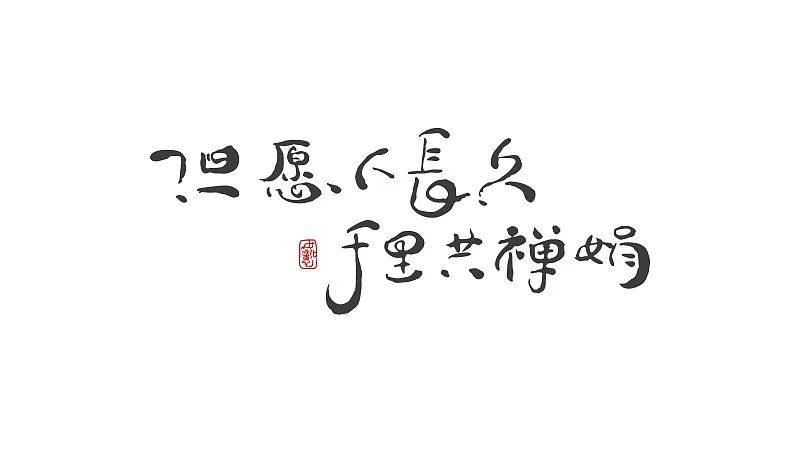 但愿人長久
千里共禅娟